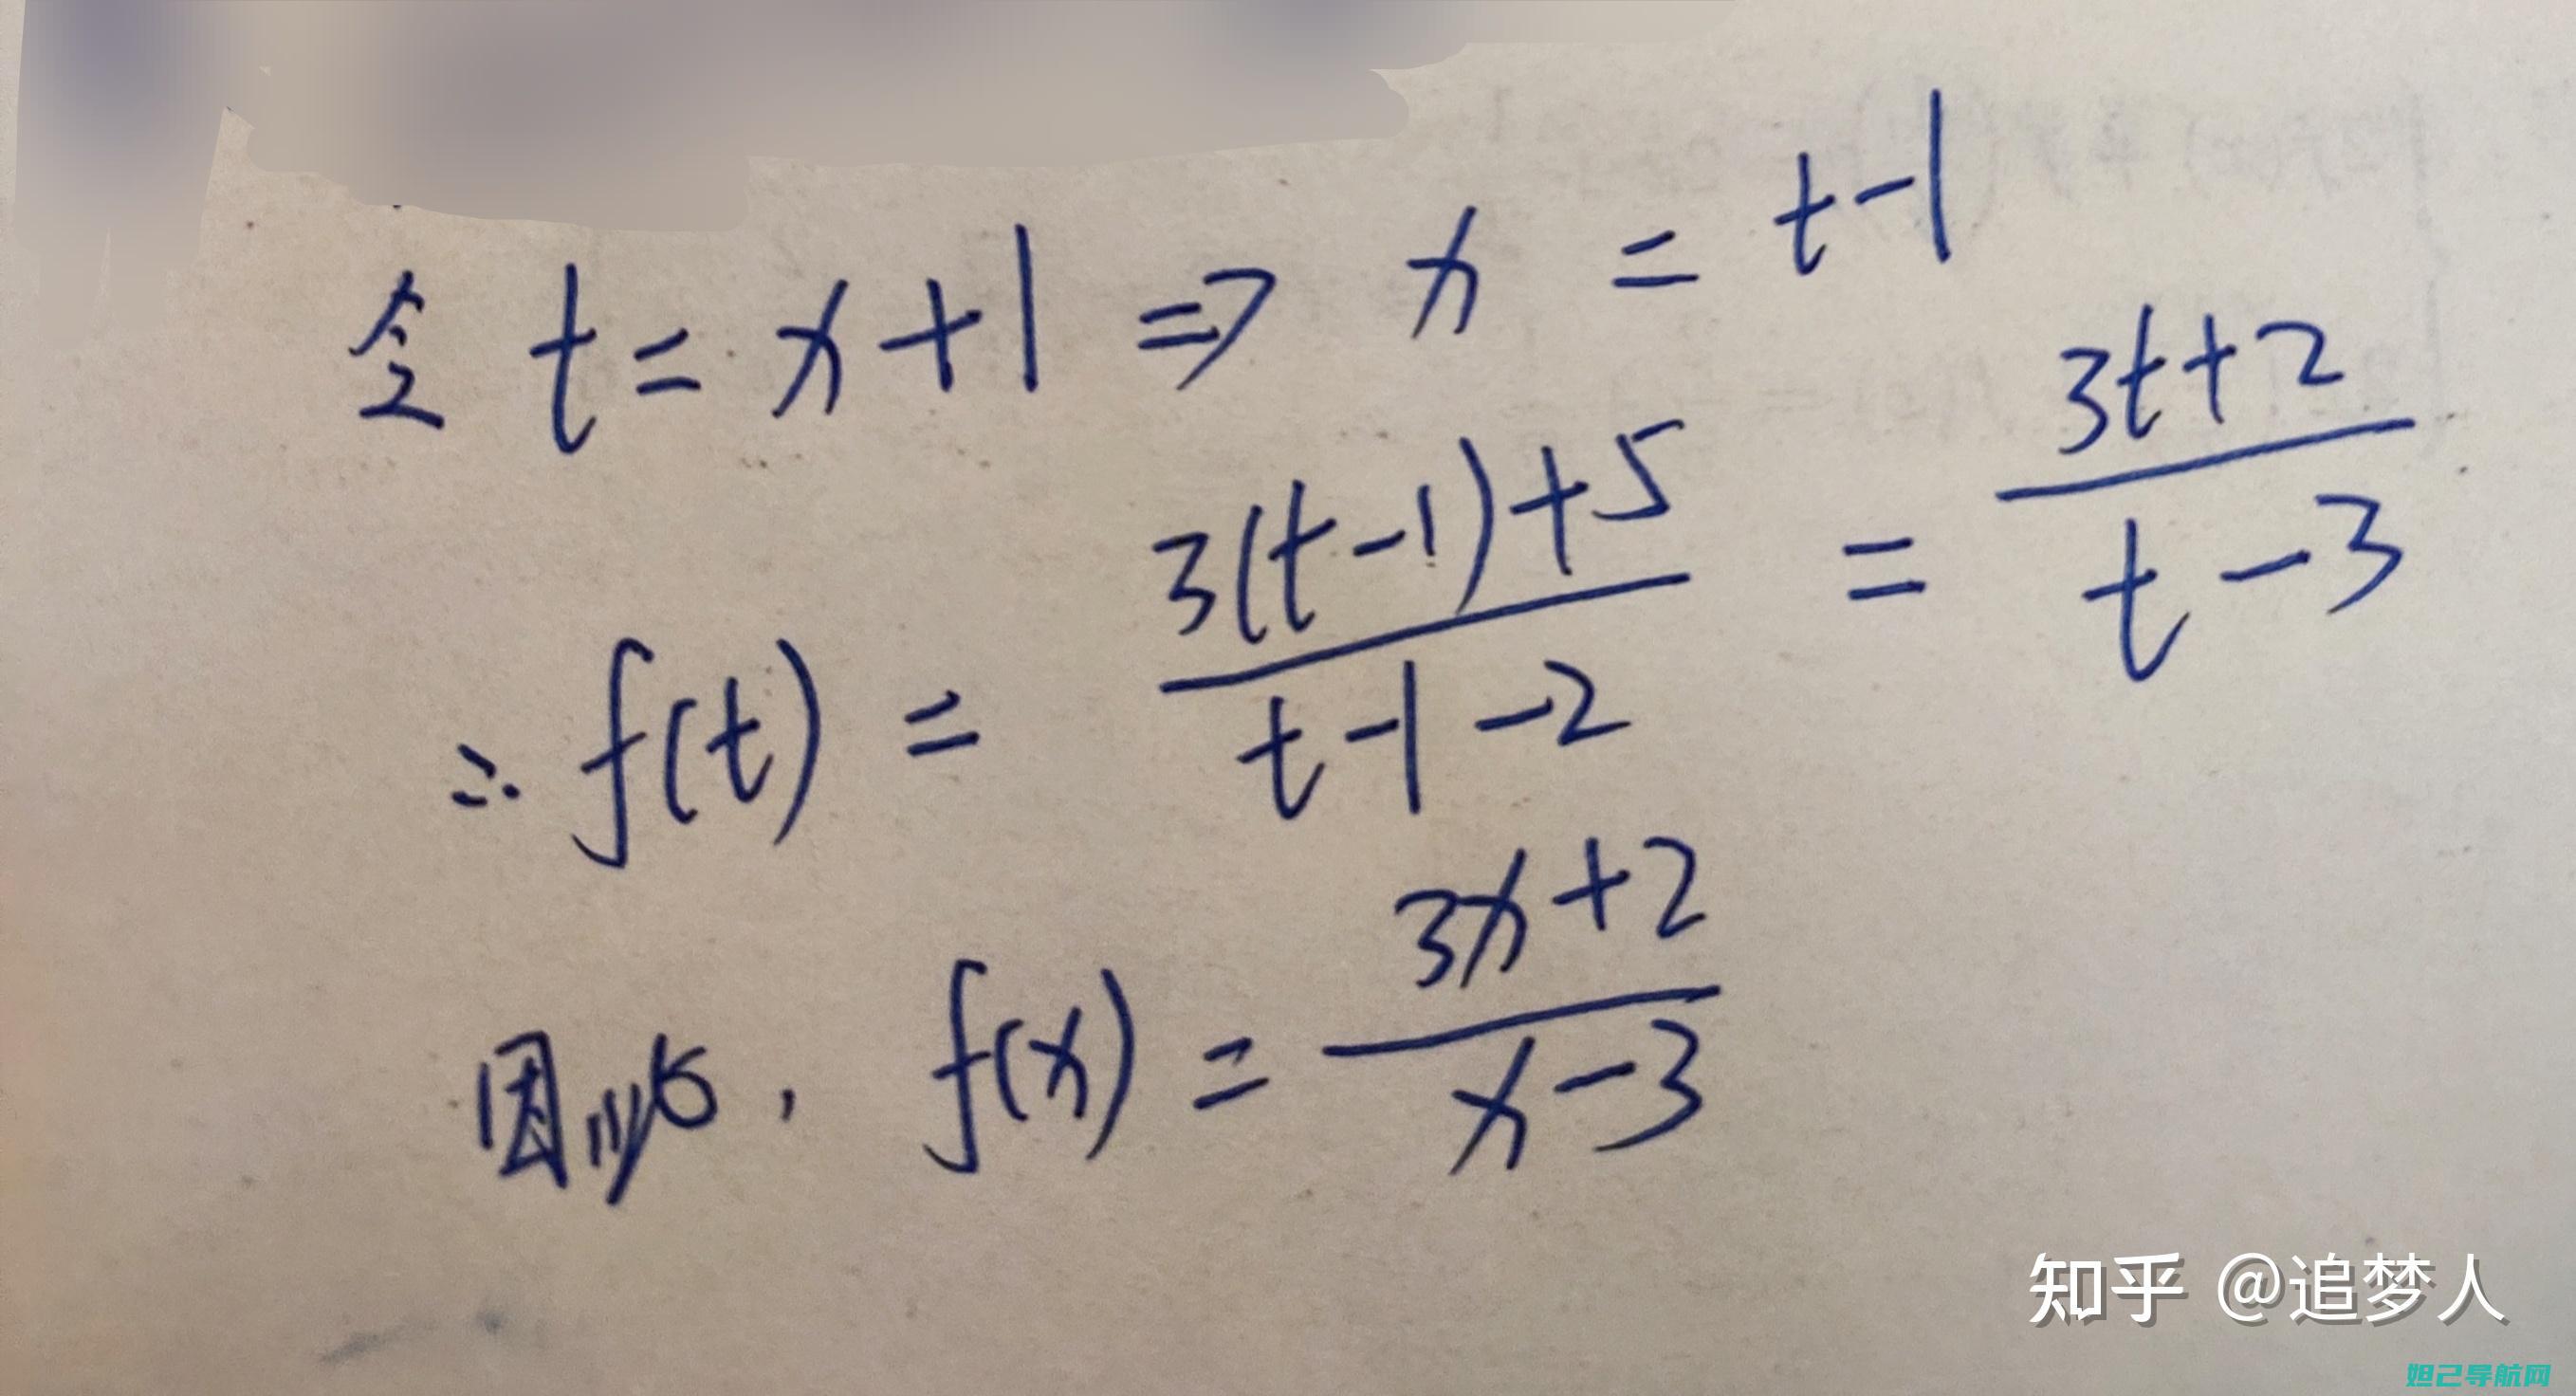 令 t = x+1 => x = t-1
∴ f(t) = \frac{3(t-1)+5}{t-1-2} = \frac{3t+2}{t-3}
因此, f(x) = \frac{3x+2}{x-3}
知乎 @追梦人
妲己导航网